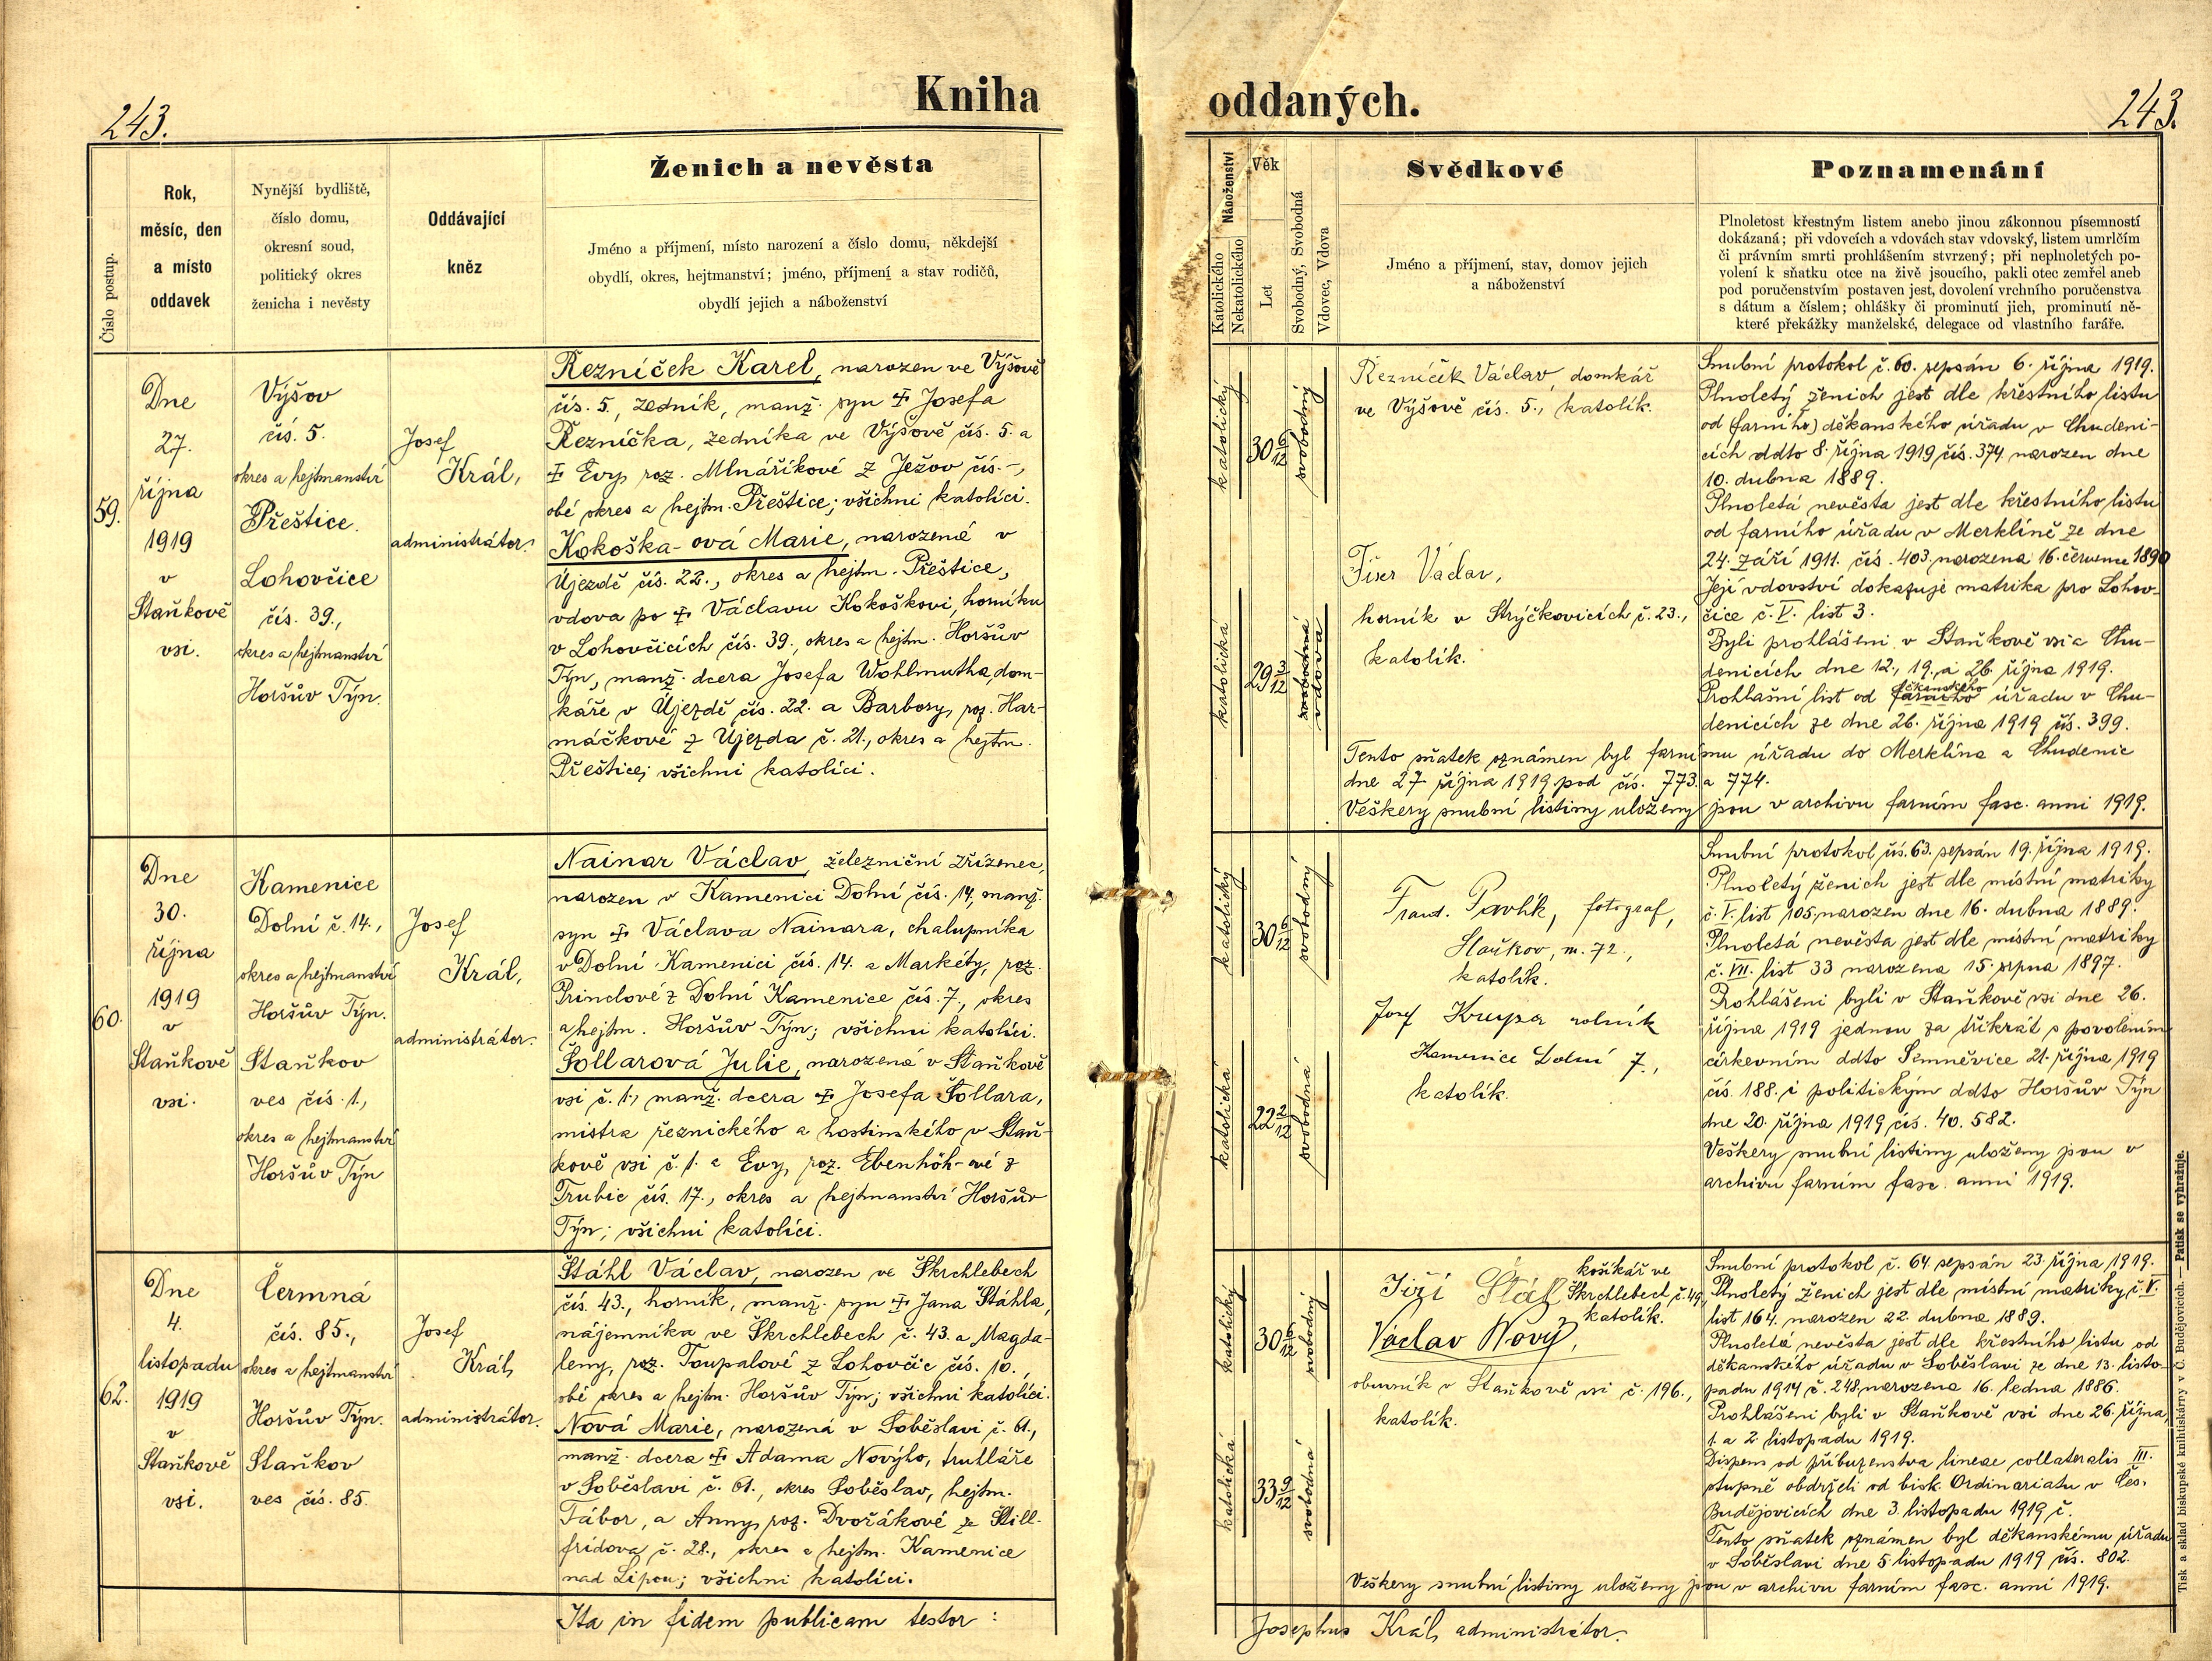 Kniha oddaných.
243.
243.
Číslo postup.
Rok,
měsíc, den
a místo
oddavek
Nynější bydliště,
číslo domu,
okresní soud,
politický okres
ženicha i nevěsty
Oddávající
kněz
Ženich a nevěsta
Jméno a příjmení, místo narození a číslo domu, někdejší
obydlí, okres, hejtmanství; jméno, příjmení a stav rodičů,
obydlí jejich a náboženství
Náboženství
Katolického
Nekatolického
Věk
Let
Svobodný, Svobodná
Vdovec, Vdova
Svědkové
Jméno a příjmení, stav, domov jejich
a náboženství
Poznamenání
Plnoletost křestným listem anebo jinou zákonnou písemností
dokázaná; při vdovcích a vdovách stav vdovský, listem umrlčím
či právním smrti prohlášením stvrzený; při neplnoletých po-
volení k sňatku otce na živě jsoucího, pakli otec zemřel aneb
pod poručenstvím postaven jest, dovolení vrchního poručenstva
s dátum a číslem; ohlášky či prominutí jich, prominutí ně-
které překážky manželské, delegace od vlastního faráře.
59.
Dne
27.
října
1919
v
Staňkově
vsi.
Výšov
čís. 5.
okres a hejtmanství
Přeštice.
Lohovčice
čís. 39.,
okres a hejtmanství
Horšův Týn.
Josef
Král,
administrátor.
Řezníček Karel, narozen ve Výšově
čís. 5., zedník, manž. syn ‡ Josefa
Řezníčka, zedníka ve Výšově čís. 5. a
‡ Evy roz. Mlnaříkové z Ježov čís. -,
obé okres a hejtm. Přeštice; všichni katolíci.
Kokoška-ová Marie, narozená v
Újezdě čís. 22., okres a hejtm. Přeštice,
vdova po ‡ Václavu Kokoškovi, horníku
v Lohovčicích čís. 39., okres a hejtm. Horšův
Týn, manž. dcera Josefa Wohlmutha, dom-
káře v Újezdě čís. 22. a Barbory, roz. Har-
máčkové z Újezda č. 21., okres a hejtm.
Přeštice; všichni katolíci.
katolický
30 6/12
svobodný
katolická
29 3/12
svobodná
vdova
Řezníček Václav, domkář
ve Výšově čís. 5., katolík.
Fiser Václav,
horník v Strýčkovicích č. 23.,
katolík.
Snubní protokol č. 60. sepsán 6. října 1919.
Plnoletý ženich jest dle křestního listu
od (farního) děkanského úřadu v Chudeni-
cích ddto 8. října 1919 čís. 374 narozen dne
10. dubna 1889.
Plnoletá nevěsta jest dle křestního listu
od farního úřadu v Merklíně ze dne
24. září 1911. čís. 403. narozena 16. července 1890
Její vdovství dokazuje matrika pro Lohov-
čice č. V. list 3.
Byli prohlášeni v Staňkově vsi a Chu-
denicích dne 12., 19., a 26. října 1919.
Prohlašní list od farního děkanského úřadu v Chu-
denicích ze dne 26. října 1919 čís. 399.
Tento sňatek oznámen byl farnímu úřadu do Merklína a Chudenic
dne 27 října 1919 pod čís. 773. a 774.
Veškery snubní listiny uloženy jsou v archivu farním fasc. anni 1919.
60.
Dne
30.
října
1919
v
Staňkově
vsi.
Kamenice
Dolní č. 14.,
okres a hejtmanství
Horšův Týn.
Staňkov
ves čís. 1.,
okres a hejtmanství
Horšův Týn
Josef
Král,
administrátor.
Nainar Václav, železniční zřízenec,
narozen v Kamenici Dolní čís. 14, manž.
syn ‡ Václava Nainara, chalupníka
v Dolní Kamenici čís. 14. a Markéty, roz.
Princlové z Dolní Kamenice čís. 7., okres
a hejtm. Horšův Týn; všichni katolíci.
Šollarová Julie, narozená v Staňkově
vsi č. 1., manž. dcera ‡ Josefa Šollara,
mistra řeznického a hostinského v Staň-
kově vsi č. 1. a Evy, roz. Ebenhöh-ové z
Trubic čís. 17., okres a hejtmanství Horšův
Týn; všichni katolíci.
katolický
30 6/12
svobodný
katolická
22 2/12
svobodná
Frant. Pavlík, fotograf,
Staňkov, m. 72.,
katolík.
Josef Krupa rolník
Kamenice Dolní 7.,
katolík.
Snubní protokol čís. 63. sepsán 19. října 1919.
Plnoletý ženich jest dle místní matriky
č. V. list 105, narozen dne 16. dubna 1889.
Plnoletá nevěsta jest dle místní matriky
č. VII. list 33 narozena 15. srpna 1897.
Prohlášeni byli v Staňkově vsi dne 26.
října 1919 jednou za třikrát s povolením
církevním ddto Semněvice 21. října 1919
čís. 188. i politickým ddto Horšův Týn
dne 20. října 1919 čís. 40.582.
Veškery snubní listiny uloženy jsou v
archivu farním fasc. anni 1919.
62.
Dne
4.
listopadu
1919
v
Staňkově
vsi.
Čermná
čís. 85.,
okres a hejtmanství
Horšův Týn.
Staňkov
ves čís. 85.
Josef
Král,
administrátor.
Štáhl Václav, narozen ve Škrchlebech
čís. 43., horník, manž. syn ‡ Jana Štáhla,
nájemníka ve Škrchlebech č. 43. a Magda-
leny, roz. Toupalové z Lohovčic čís. 10.,
obé okres a hejtm. Horšův Týn; všichni katolíci.
Nová Marie, narozená v Soběslavi č. 61.,
manž. dcera ‡ Adama Nového, truhláře
v Soběslavi č. 61., okres Soběslav, hejtm.
Tábor, a Anny, roz. Dvořákové ze Štill-
frídova č. 28., okres a hejtm. Kamenice
nad Lipou; všichni katolíci.
katolický
30 6/12
svobodný
katolická
33 9/12
svobodná
Jiří Stáhl košíkář ve
Škrchlebech č. 49.,
katolík.
Václav Nový,
obuvník v Staňkově vsi č. 196.,
katolík.
Snubní protokol č. 64. sepsán 23. října 1919.
Plnoletý ženich jest dle místní matriky, č. V.
list 164. narozen 22. dubna 1889.
Plnoletá nevěsta jest dle křestního listu od
děkanského úřadu v Soběslavi ze dne 13. listo-
padu 1914 č. 248. narozena 16. ledna 1886.
Prohlášeni byli v Staňkově vsi dne 26. října,
1. a 2. listopadu 1919.
Dispens od příbuzenstva lineae collateralis III.
stupně obdrželi od bisk. Ordinariatu v Čes.
Budějovicích dne 3. listopadu 1919 č.
Tento sňatek oznámen byl děkanskému úřadu
v Soběslavi dne 5 listopadu 1919 čís. 802.
Veškery snubní listiny uloženy jsou v archivu farním fasc. anni 1919.
Ita in fidem publicam testor:
Josephus Král, administrátor.
Tisk a sklad biskupské knihtiskárny v Č. Budějovicích. — Patisk se vyhražuje.